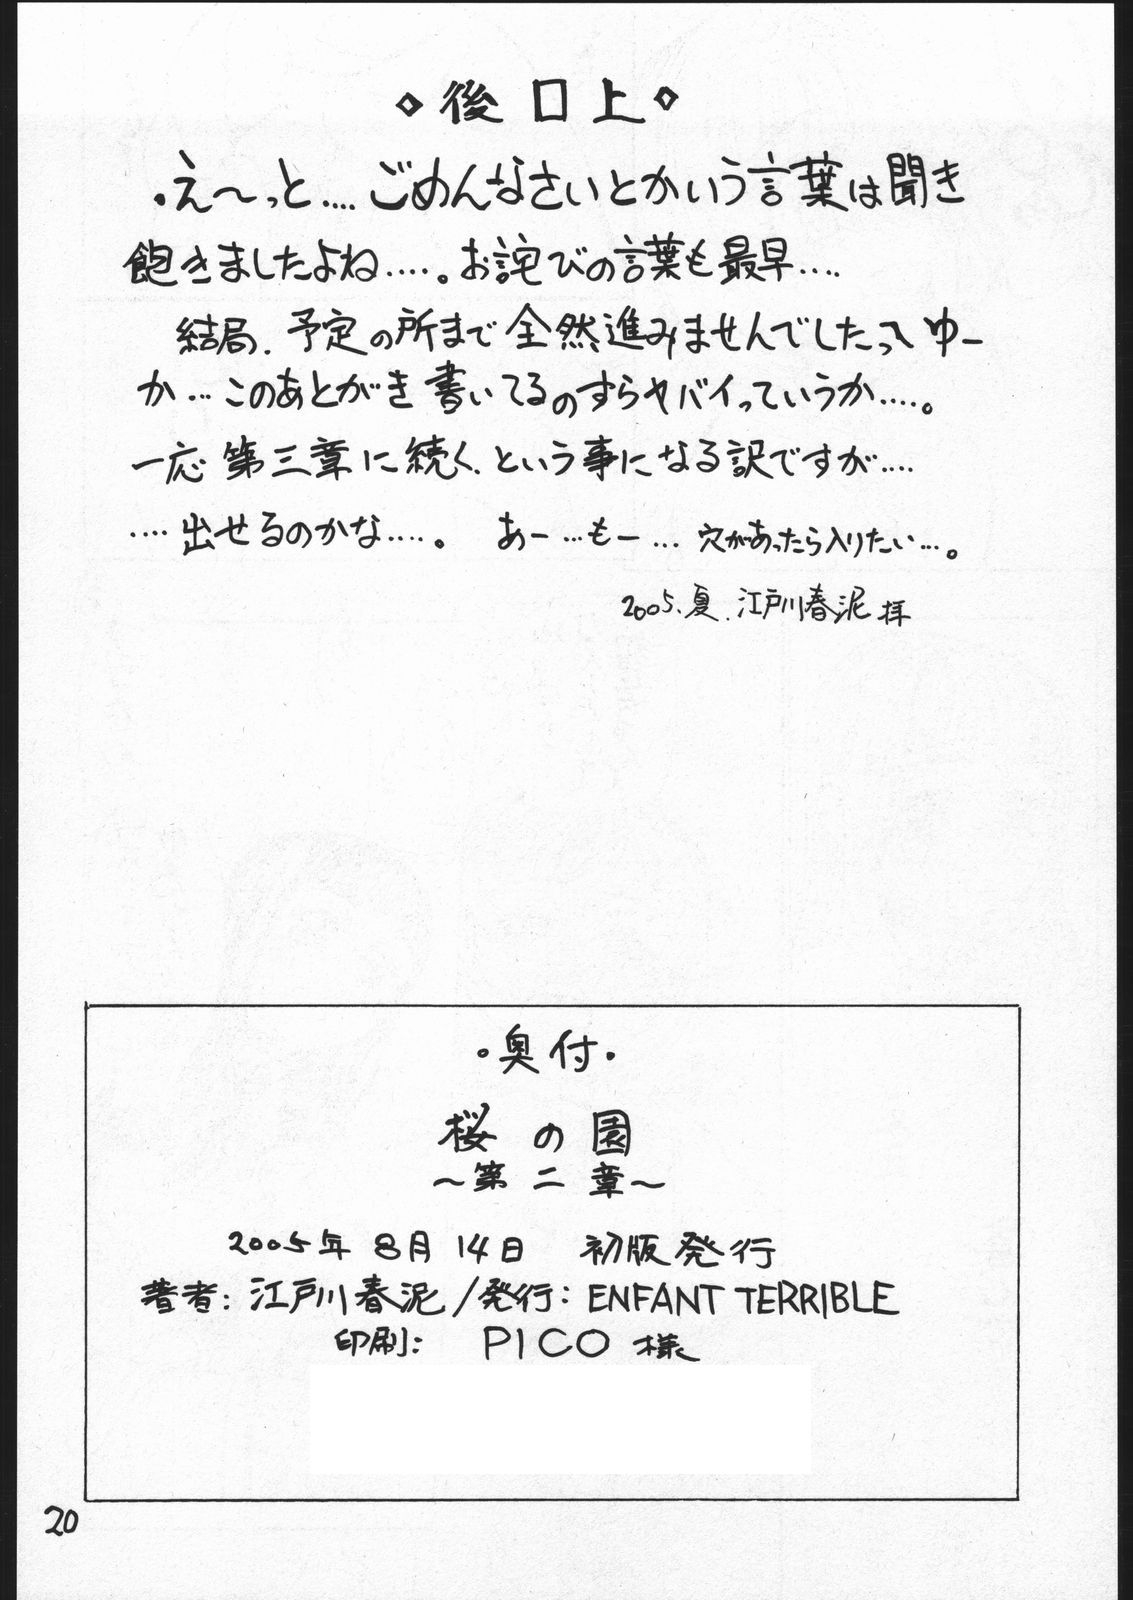 ◇後口上◇
・え〜っと....ごめんなさいとかいう言葉は聞き
飽きましたよね....。お詫びの言葉も最早....
結局、予定の所まで全然進みませんでしたってゆー
か...このあとがき書いてるのすらヤバイっていうか....。
一応第三章に続く、という事になる訳ですが....
....出せるのかな....。 あー...もー... 穴があったら入りたい...。
2005.夏.江戸川春泥拝
・奥付・
桜の園
〜第二章〜
2005年8月14日 初版発行
著者:江戸川春泥/発行:ENFANT TERRIBLE
印刷: PICO様
20